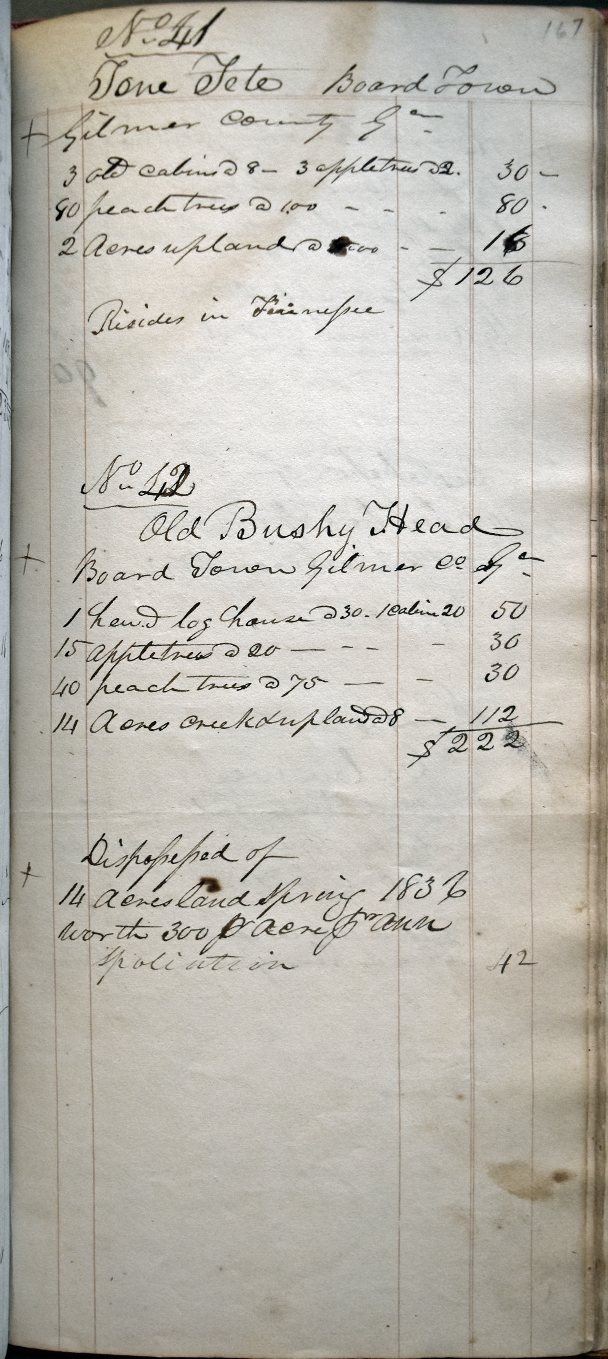 167
No 41
Tone Tete Board Town
+ Gilmer County Ga
3 old cabins @ 8 - 3 appletrees @ 2. 30 -
80 peach trees @ 1.00 - - - 80 -
2 Acres upland @ - - 16
$126
Resides in Tennessee
No 42
Old Bushy Head
+ Board Town Gilmer Co Ga
1 hewd log house @ 30 - 1 cabin 20 50
15 appletrees @ 20 - - - - 30
40 peach trees @ 75 - - - 30
14 Acres creek & upland @ 8 - 112
$222
+ Dispossessed of
14 Acres land Spring 1836
worth 300 pr Acre pr Ann
Spoliation 42